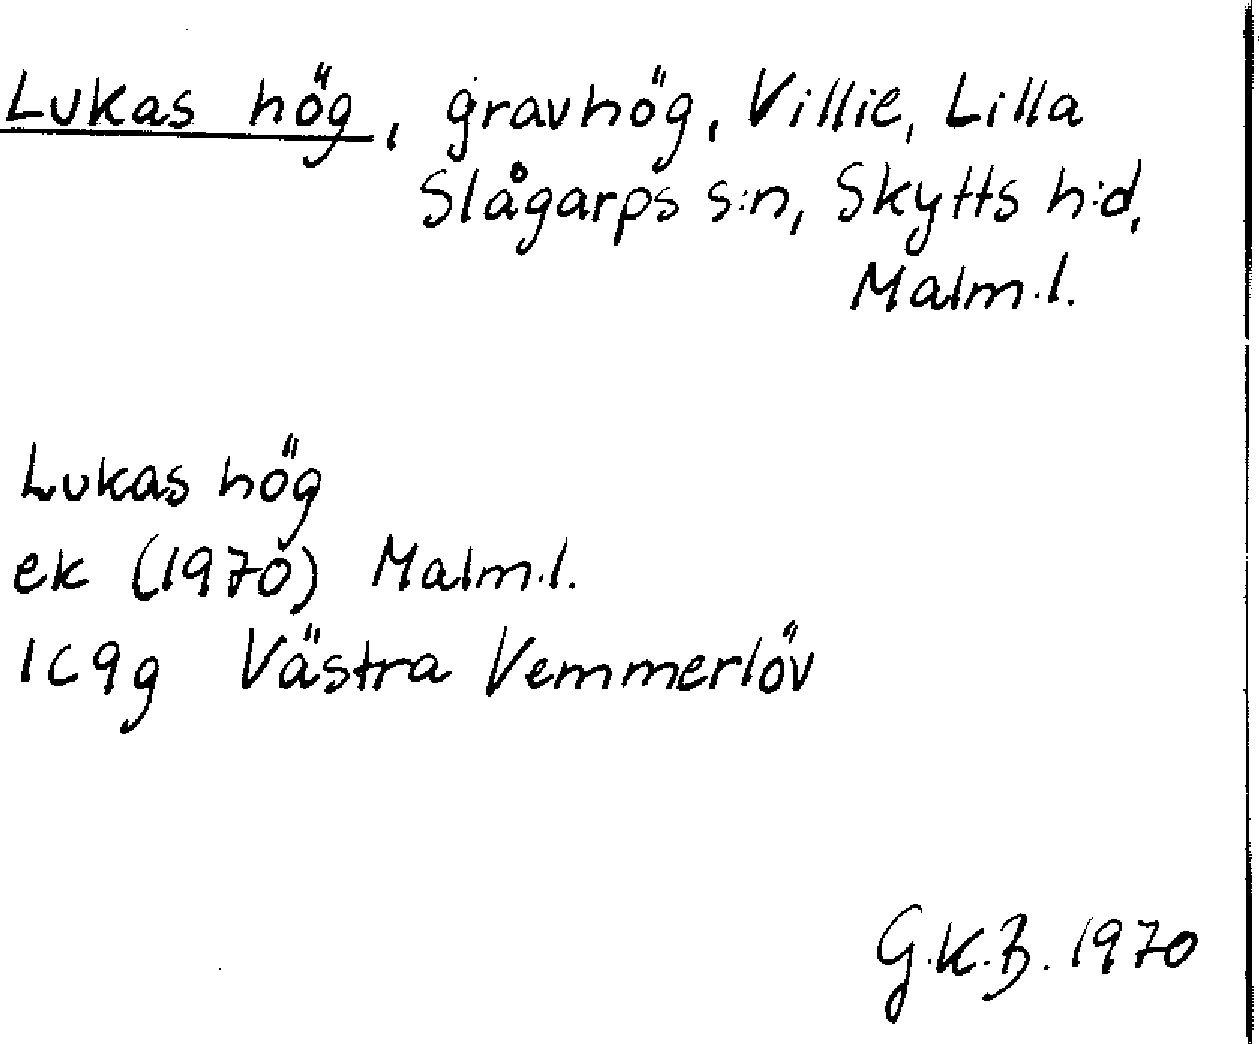 Lukas hög, gravhög, Villie, Lilla
Slågarps s:n, Skytts h:d,
Malm.l.
Lukas hög
ek (1970) Malm.l.
1C9g Västra Vemmerlöv
G.K.B. 1970